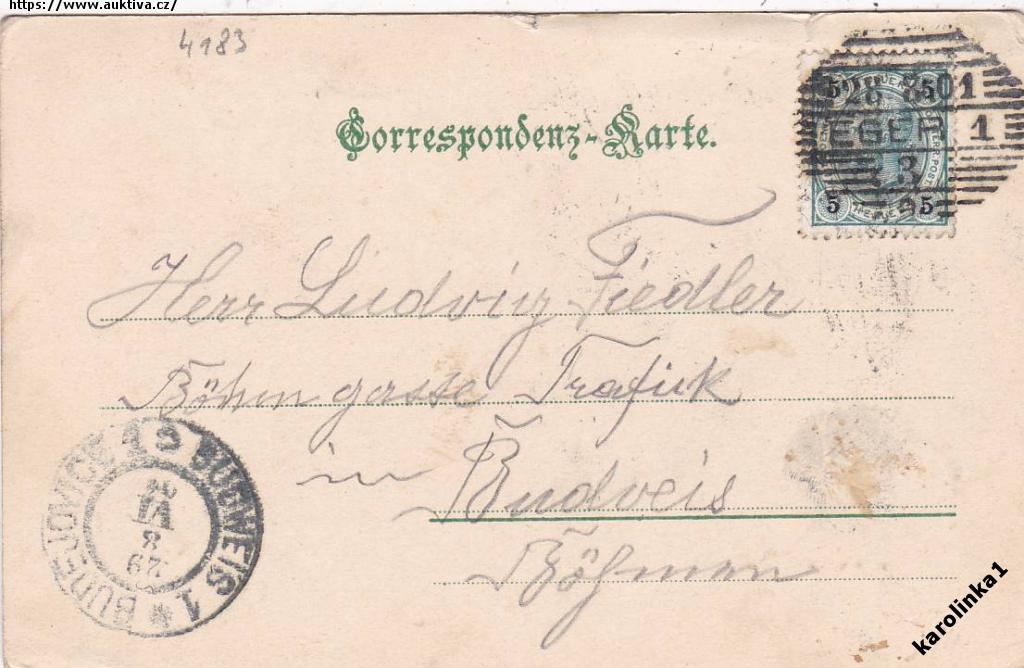 https://www.auktiva.cz/
4183
Correspondenz-Karte.
5 5
28 8 01
EGER 1
3
5 5
Herr Ludwig Fiedler
Böhmgasse Trafick
in Budweis
Böhmen
BUDWEIS 1 * BUDĚJOVICE 1
29
8
karolinka1